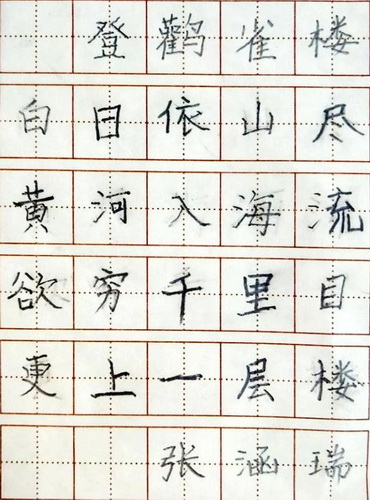 登鹳雀楼
白日依山尽
黄河入海流
欲穷千里目
更上一层楼
张涵瑞